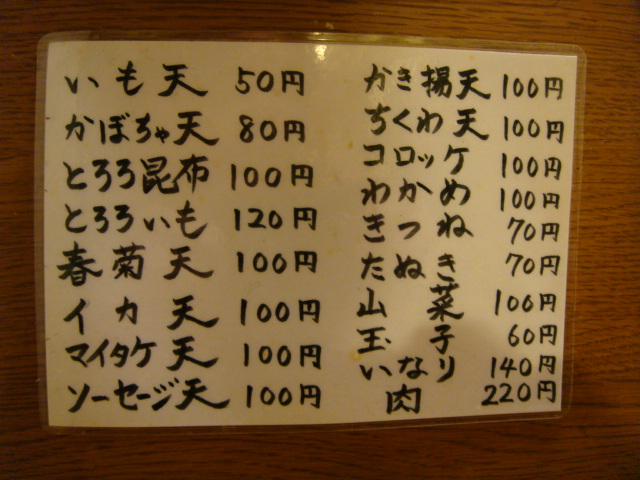 いも天 50円
かぼちゃ天 80円
とろろ昆布 100円
とろろいも 120円
春菊天 100円
イカ天 100円
マイタケ天 100円
ソーセージ天 100円
かき揚天 100円
ちくわ天 100円
コロッケ 100円
わかめ 100円
きつね 70円
たぬき 70円
山菜 100円
玉子 60円
いなり 140円
肉 220円